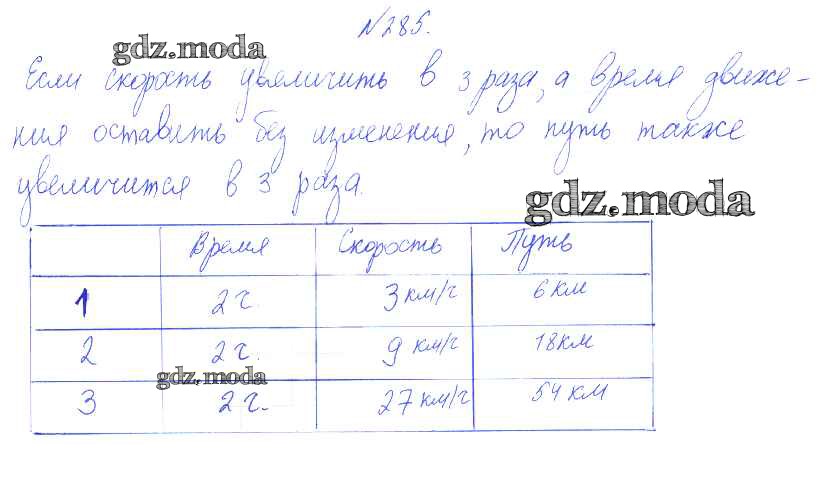 №285.
gdz.moda
Если скорость увеличить в 3 раза, а время движе-
ния оставить без изменения, то путь также
увеличится в 3 раза.
gdz.moda
Время Скорость Путь
1 2 ч. 3 км/ч 6 км
2 2 ч. 9 км/ч 18 км
gdz.moda
3 2 ч. 27 км/ч 54 км